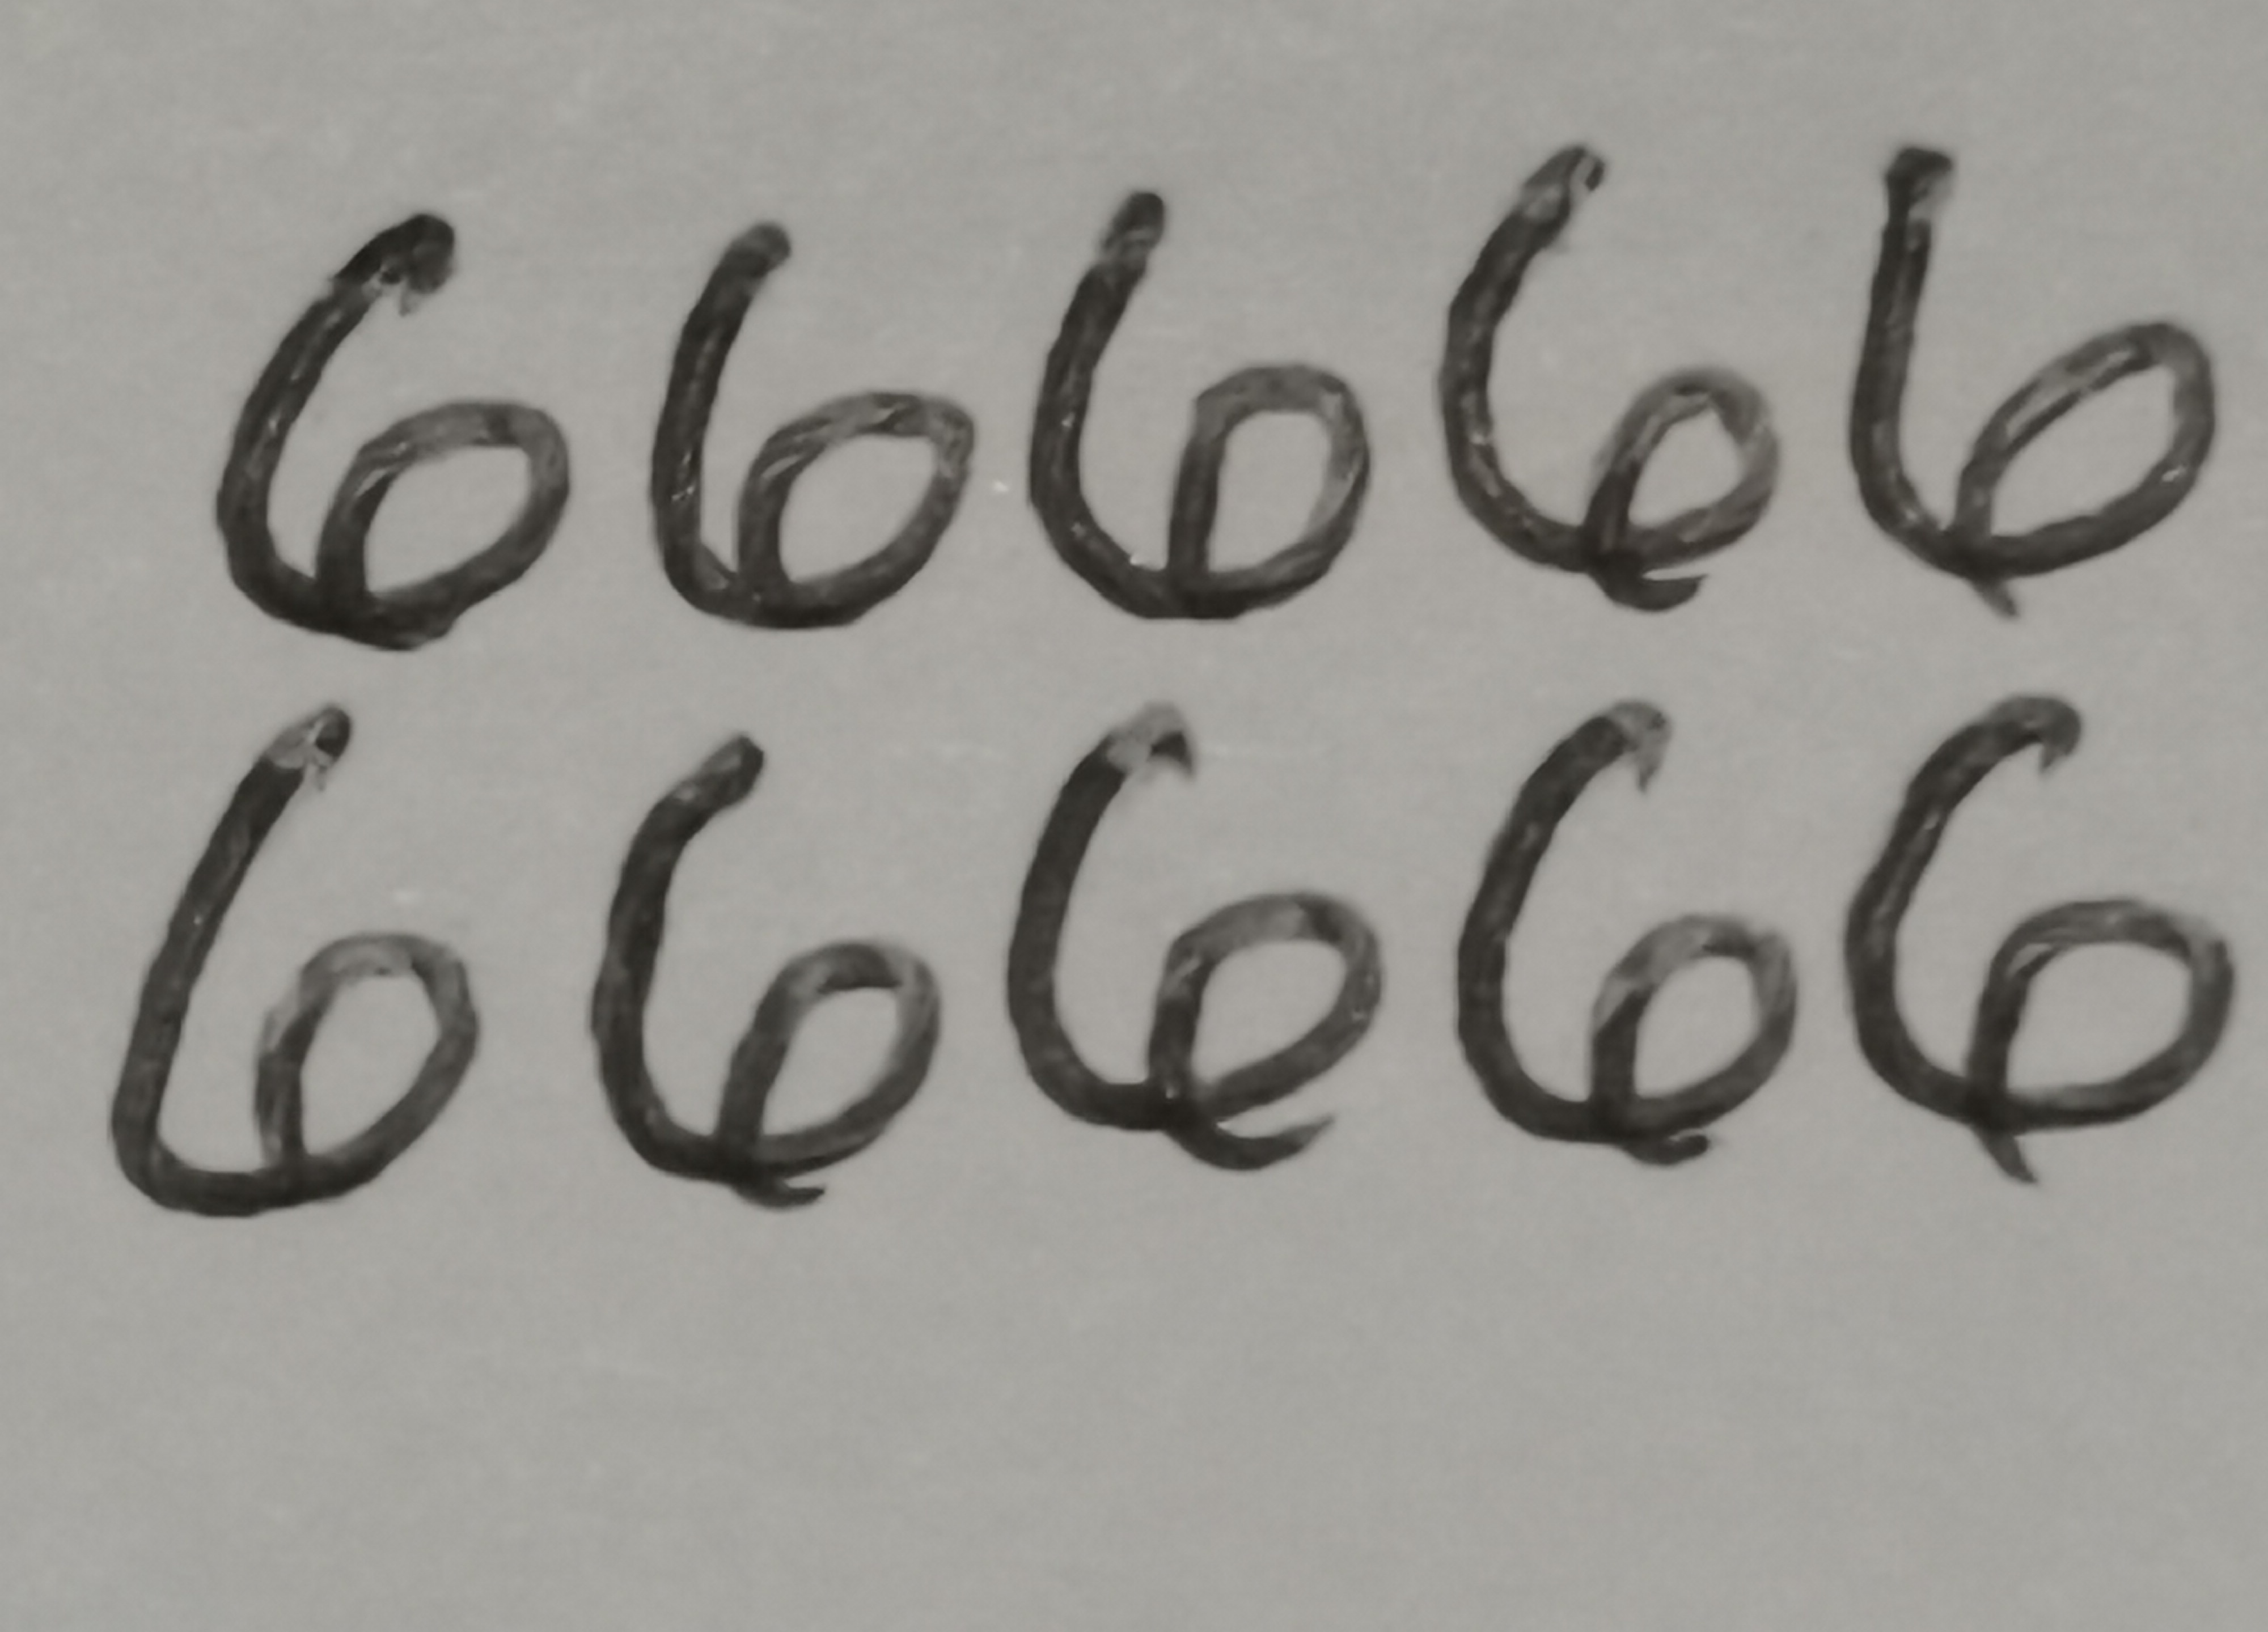 66666
66666